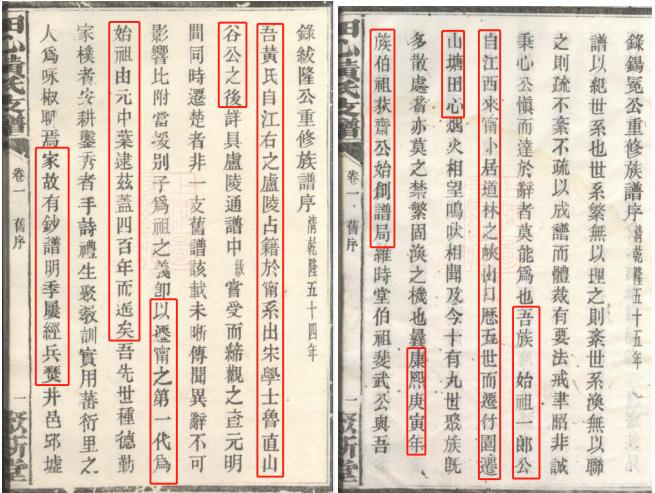 錄紱隆公重修族譜序 清乾隆五十四年
吾黃氏自江右之廬陵占籍於甯系出宋學士魯直山
谷公之後詳具盧陵通譜中紱嘗受而締觀之查元明
間同時遷楚者非一支舊譜該載未晰傳聞異辭不可
影響比附當援別子爲祖之義卽以遷甯之第一代爲
始祖由元中葉逮茲蓋四百年而遙矣吾先世種德勤
家樸者安耕鑿秀者手詩禮生聚教訓實用蕃衍里之
人爲咏椒聊焉家故有鈔譜明季屢經兵燹井邑邱墟
田心黃氏支譜 卷一 舊序 一 斯堂
錄錫冕公重修族譜序 清乾隆五十五年
譜以紀世系也世系繁無以理之則紊世系渙無以聯
之則疏不紊不疏以成譜而體裁有要法戒聿昭非誠
秉心公愼而達於辭者莫能爲也吾族 始祖一郎公
自江西來甯小居道林之峽山口歷五世而遷竹園遷
山塘田心烟火相望鳴吠相聞及今十有九世聚族旣
多散處亦莫之禁繁固渙之機也曩康熙庚寅年
族伯祖荻齋公始創譜局維時堂伯祖斐武公與吾
田心黃氏支譜 卷一 舊序 一 斯堂